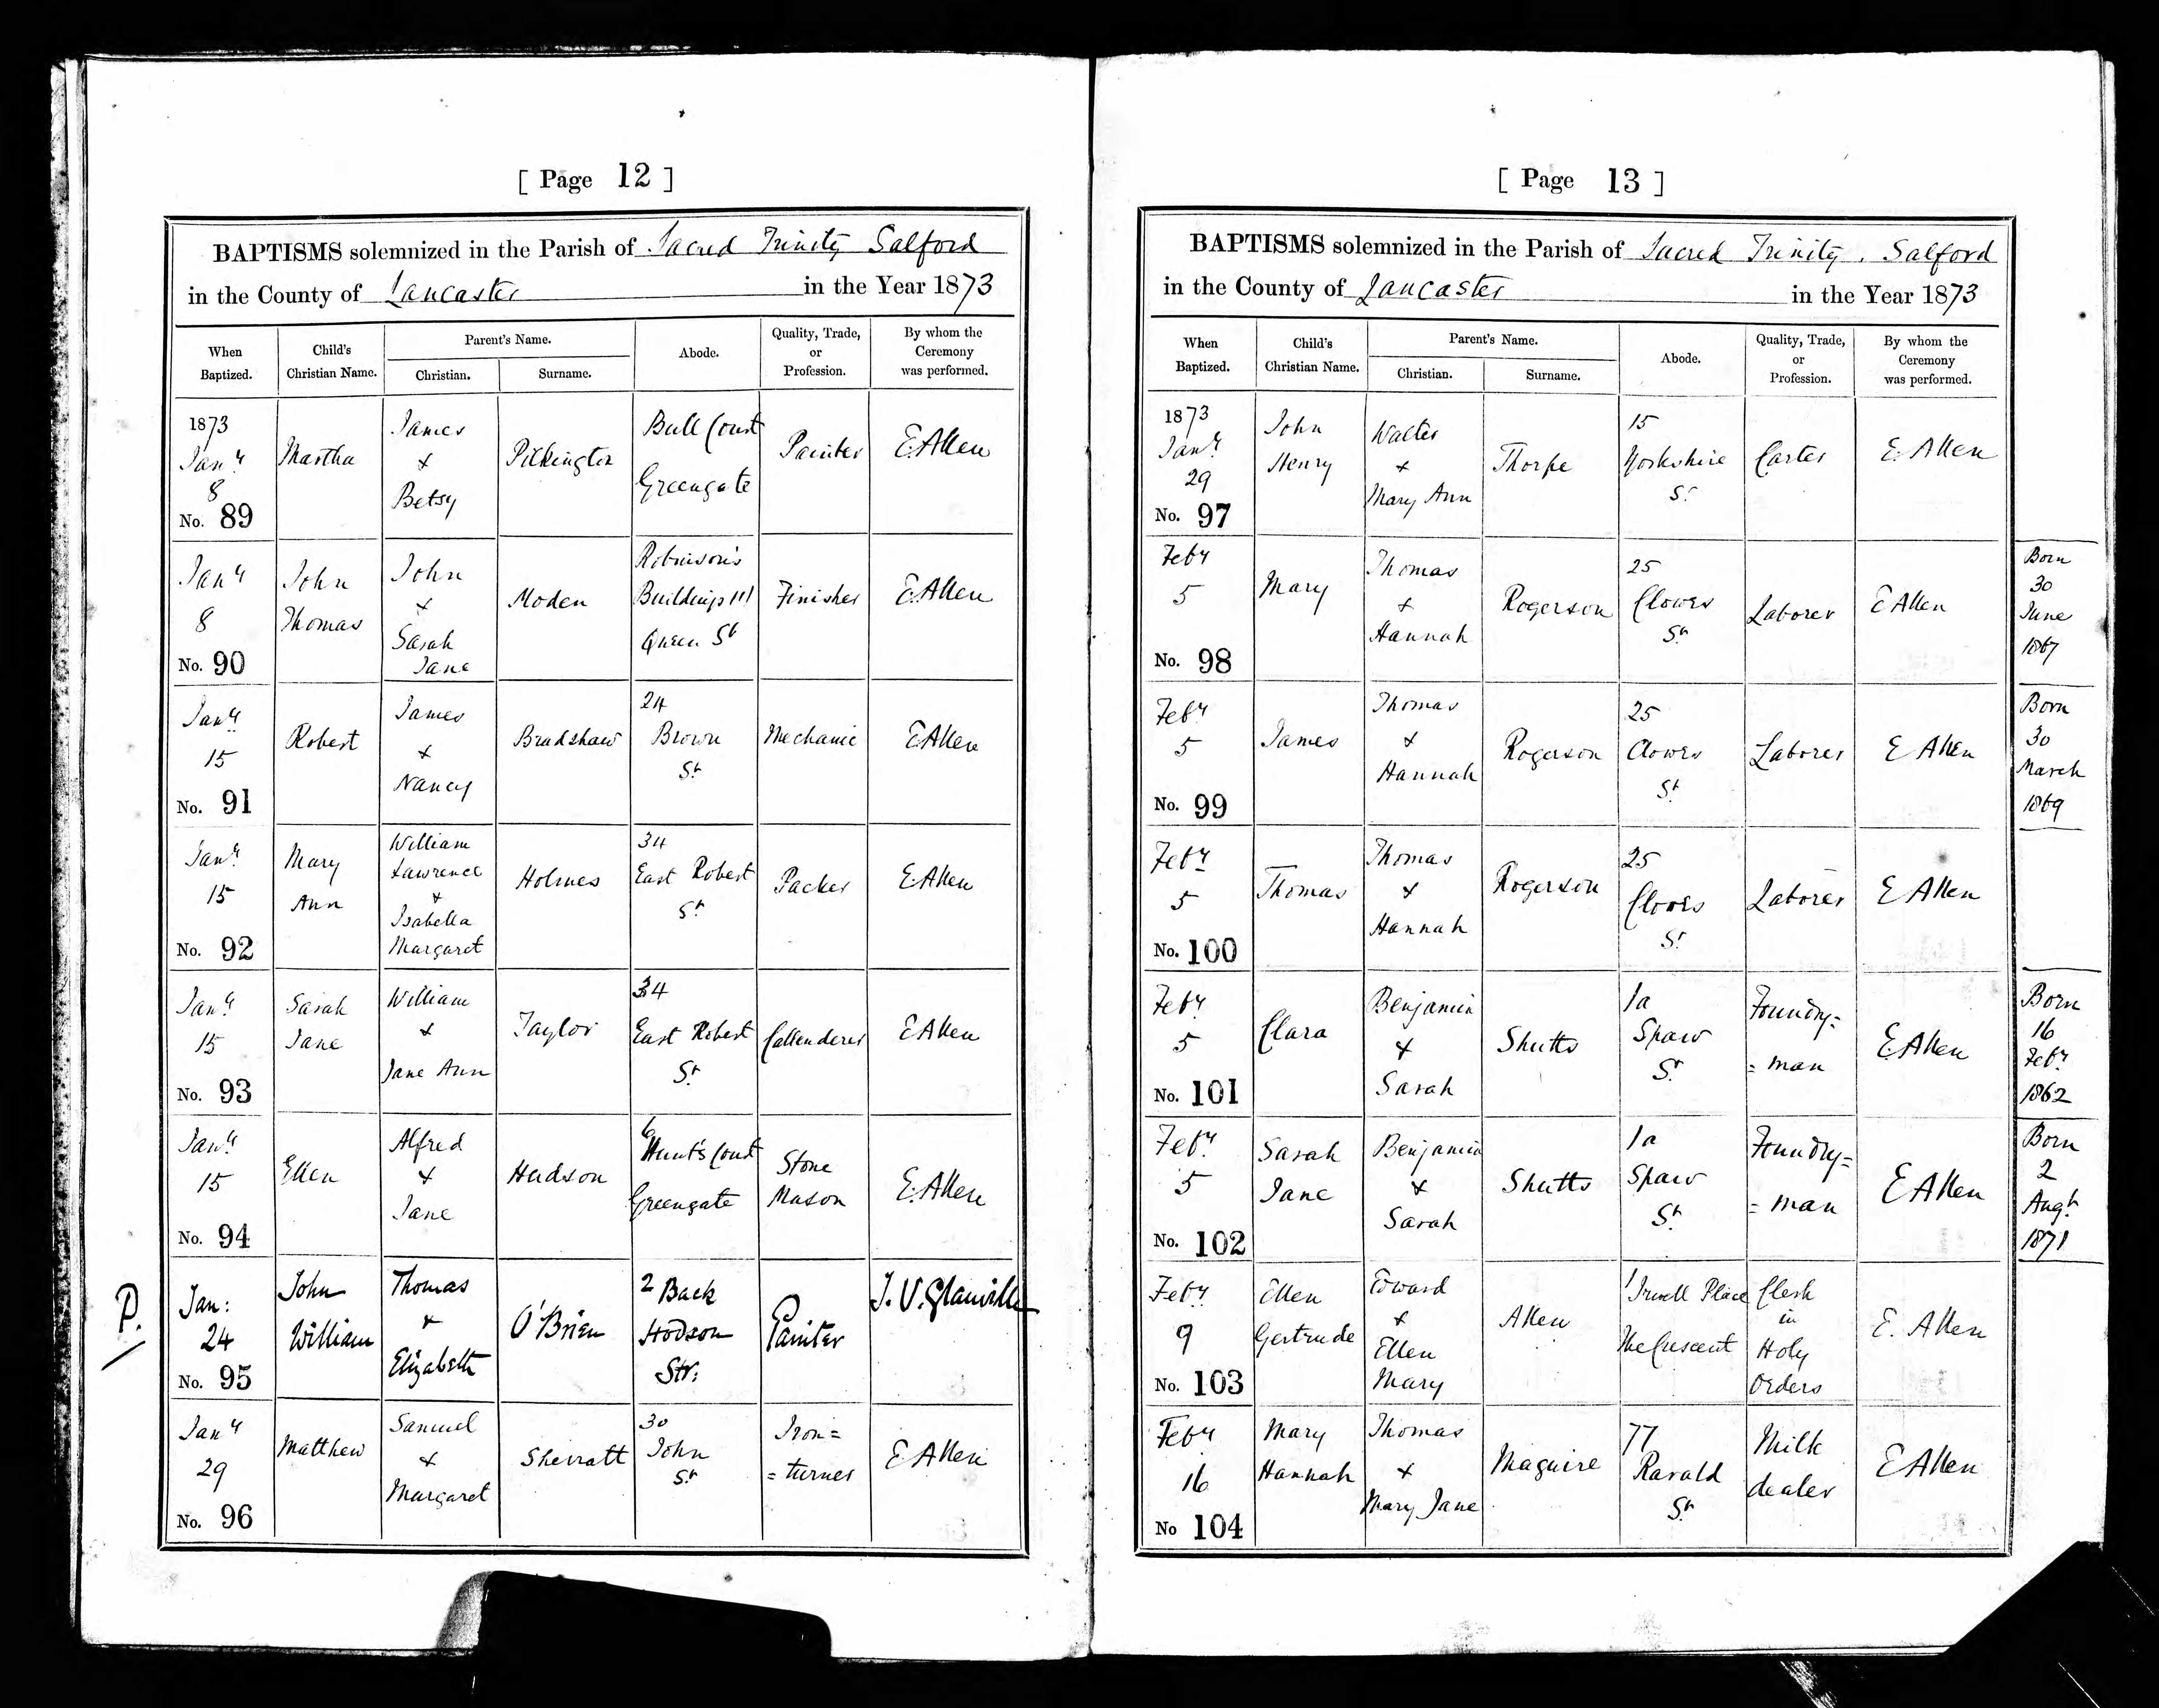 [ Page 12 ]
BAPTISMS solemnized in the Parish of Sacred Trinity Salford
in the County of Lancaster in the Year 1873
When Baptized.
Child's Christian Name.
Parent's Name.
Christian.
Surname.
Abode.
Quality, Trade, or Profession.
By whom the Ceremony was performed.
1873 Jany 8 No. 89
Martha
James & Betsy
Pilkington
Bull Court Greengate
Painter
E. Allen
Jany 8 No. 90
John Thomas
John & Sarah Jane
Moden
Robinson's Buildings Queen St
Finisher
E. Allen
Jany 15 No. 91
Robert
James & Nancy
Bradshaw
24 Brown St
Mechanic
E Allen
Jany 15 No. 92
Mary Ann
William Lawrence & Isabella Margaret
Holmes
34 East Robert St
Packer
E. Allen
Jany 15 No. 93
Sarah Jane
William & Jane Ann
Taylor
34 East Robert St
Callenderer
E Allen
Jany 15 No. 94
Ellen
Alfred & Jane
Hudson
6 Hunt's Court Greengate
Stone Mason
E. Allen
P.
Jan: 24 No. 95
John William
Thomas & Elizabeth
O'Brien
2 Back Hodson Str:
Painter
J. V. Glanville
Jany 29 No. 96
Matthew
Samuel & Margaret
Sherratt
30 John St
Iron= =turner
E Allen
[ Page 13 ]
BAPTISMS solemnized in the Parish of Sacred Trinity, Salford
in the County of Lancaster in the Year 1873
When Baptized.
Child's Christian Name.
Parent's Name.
Christian.
Surname.
Abode.
Quality, Trade, or Profession.
By whom the Ceremony was performed.
1873 Jany 29 No. 97
John Henry
Walter & Mary Ann
Thorpe
15 Yorkshire St
Carter
E. Allen
Feby 5 No. 98
Mary
Thomas & Hannah
Rogerson
25 Clowes St
Laborer
E Allen
Born 30 June 1867
Feby 5 No. 99
James
Thomas & Hannah
Rogerson
25 Clowes St
Laborer
E Allen
Born 30 March 1869
Feby 5 No. 100
Thomas
Thomas & Hannah
Rogerson
25 Clowes St
Laborer
E Allen
Feby 5 No. 101
Clara
Benjamin & Sarah
Shutts
1a Spaw St
Foundry= =man
E. Allen
Born 16 Feby 1862
Feby 5 No. 102
Sarah Jane
Benjamin & Sarah
Shutts
1a Spaw St
Foundry= =man
E Allen
Born 2 Augt 1871
Feby 9 No. 103
Ellen Gertrude
Edward & Ellen Mary
Allen
1 Irwell Place The Crescent
Clerk in Holy Orders
E. Allen
Feby 16 No 104
Mary Hannah
Thomas & Mary Jane
Maguire
77 Ravald St
Milk dealer
E Allen